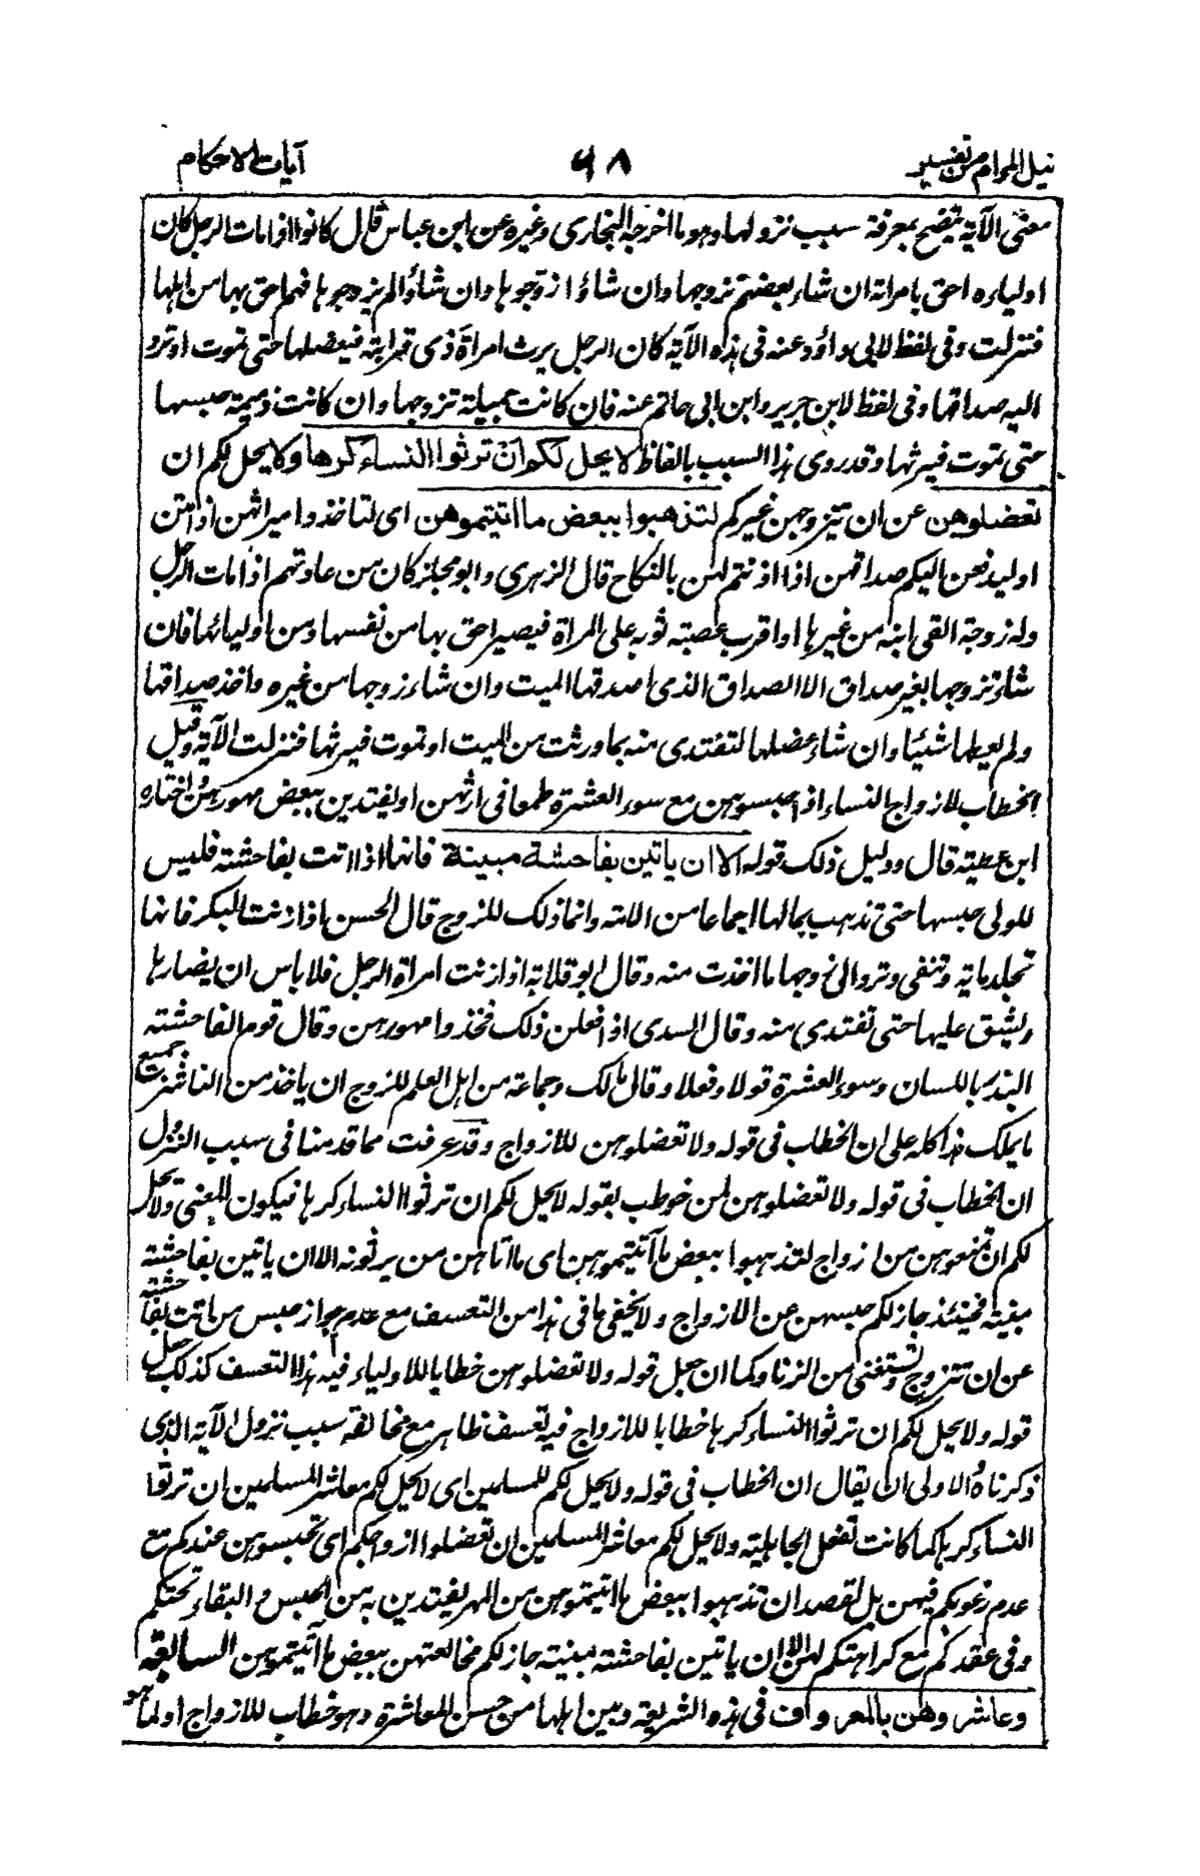 نيل المرام من تفسير ٦٨ آيات الاحكام
معنى الآية يتضح بمعرفة سبب نزولها وهو ما اخرجه البخارى وغيره عن ابن عباس قال كانوا اذا مات الرجل كان
اولياءه احق بامرأته ان شاء بعضهم تزوجها وان شاؤا زوجوها وان شاؤا لم يزوجوها فهم احق بها من اهلها
فنزلت وفى لفظ لابى داؤد عنه فى هذه الآية كان الرجل يرث امرأة ذى قرابته فيعضلها حتى تموت او ترد
اليه صداقها وفى لفظ لابن جرير وابن ابى حاتم عنه فان كانت جميلة تزوجها وان كانت ذميمة حبسها
حتى تموت فيرثها وقد روى هذا السبب بالفاظ لا يحل لكم ان ترثوا النساء كرها ولا يحل لكم ان
تعضلوهن عن ان يتزوجهن غيركم لتذهبوا ببعض ما اتيتموهن اى لتاخذوا ميراثهن اذا متن
او ليدفعن اليكم صداقهن اذا اذنتم لهن بالنكاح قال الزهرى وابو مجلز كان من عادتهم اذا مات الرجل
وله زوجة القى ابنه من غيرها او اقرب عصبته ثوبه على المراة فيصير احق بها من نفسها ومن اوليائها فان
شاء تزوجها بغير صداق الا الصداق الذى اصدقها الميت وان شاء زوجها من غيره واخذ صداقها
ولم يعطها شيئا وان شاء عضلها لتفتدى منه بما ورثت من الميت او تموت فيرثها فنزلت الآية وقيل
الخطاب لازواج النساء اذا حبسوهن مع سوء العشرة طمعا فى ارثهن او يفتدين ببعض مهورهن واختاره
ابن عطية قال ودليل ذلك قوله الا ان ياتين بفاحشة مبينة فانها اذا اتت بفاحشة فليس
للولى حبسها حتى تذهب بمالها اجماعا من الامة وانما ذلك للزوج قال الحسن اذا زنت البكر فانها
تجلد ماية وتنفى وترد الى زوجها ما اخذت منه وقال ابو قلابة اذا زنت امراة الرجل فلا باس ان يضارها
ويشق عليها حتى تفتدى منه وقال السدى اذا فعلن ذلك فخذوا مهورهن وقال قوم الفاحشة
البذاء باللسان وسوء العشرة قولا وفعلا وقال مالك وجماعة من اهل العلم للزوج ان ياخذ من الناشز جميع
ما يملك هذا كله على ان الخطاب فى قوله ولا تعضلوهن للازواج وقد عرفت مما قدمنا فى سبب النزول
ان الخطاب فى قوله ولا تعضلوهن لمن خوطب بقوله لا يحل لكم ان ترثوا النساء كرها فيكون المعنى ولا يحل
لكم ان تمنعوهن من ازواج لتذهبوا ببعض ما آتيتموهن اى ما اتاهن من يرثونه الا ان ياتين بفاحشة
مبينة فحينئذ جاز لكم حبسهن عن الازواج ولا يخفى ما فى هذا من التعسف مع عدم جواز حبس من اتت بفاحشة
عن ان تتزوج وتستغنى من الزنا وكما ان جعل قوله ولا تعضلوهن خطابا للاولياء فيه هذا التعسف كذلك جعل
قوله ولا يحل لكم ان ترثوا النساء كرها خطابا للازواج فيه تعسف ظاهر مع مخالفة سبب نزول الآية الذى
ذكرناه والاولى ان يقال ان الخطاب فى قوله ولا يحل لكم للمسلمين اى لا يحل لكم معاشر المسلمين ان ترثوا
النساء كرها كما كانت تفعل الجاهلية ولا يحل لكم معاشر المسلمين ان تعضلوا ازواجكم اى تحبسوهن عندكم مع
عدم رغوبكم فيهن بل لقصد ان تذهبوا ببعض ما اتيتموهن من المهر يفتدين به من الحبس والبقاء تحتكم
وفى عقدكم مع كراهتكم لهن الا ان ياتين بفاحشة مبينة جاز لكم مخالعتهن ببعض ما آتيتموهن السابعة
وعاشروهن بالمعروف فى هذه الشريعة وبين اهلها من حسن المعاشرة وهو خطاب للازواج او لما هو